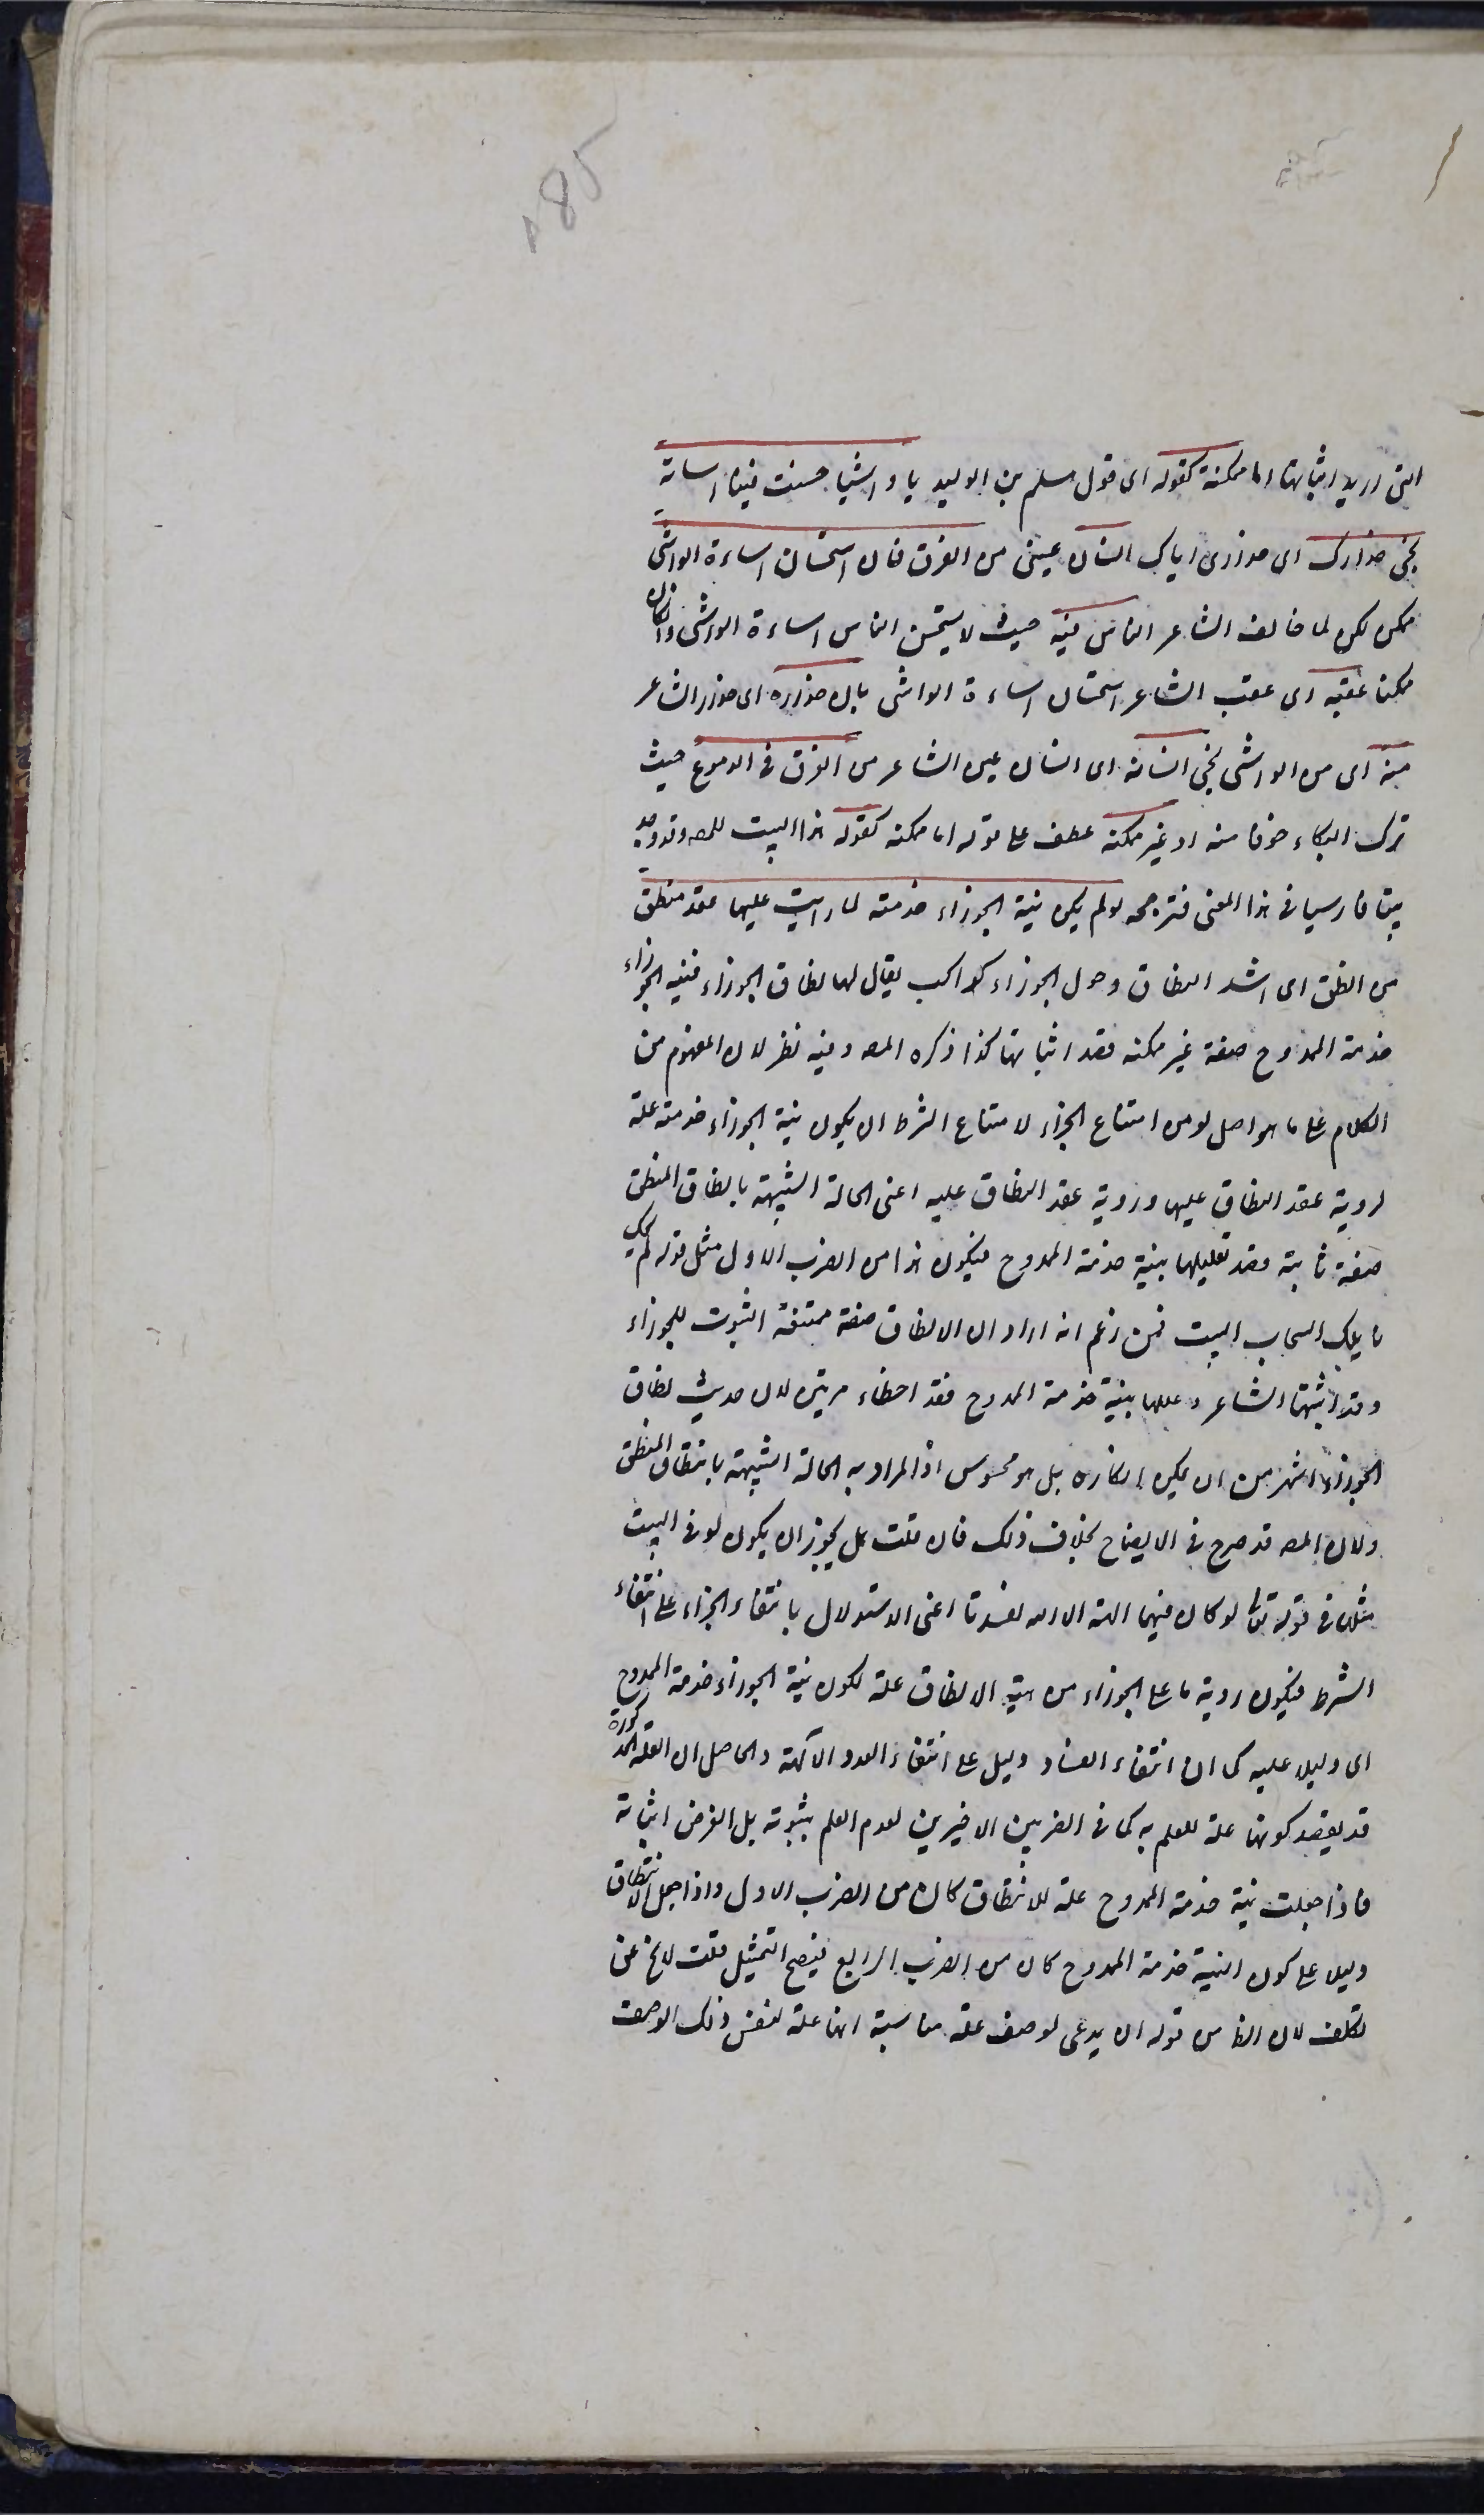 485
التى اريد اثباتها اما ممكنة كقوله اى قول مسلم بن الوليد يا واشيا حسنت فينا اساءته
نجى حذارك اى حذارى اياك انسان عينى من الغرق فان استحسان اساءة الواشى
ممكن لكن لما خالف الشاعر الناس فيه حيث لا يستحسن الناس اساءة الواشى وان كان
ممكنا عقبه اى عقب الشاعر استحسان اساءة الواشى بان حذاره اى حذار الشاعر
منه اى من الواشى نجى انسانه اى انسان عين الشاعر من الغرق فى الدموع حيث
ترك البكاء خوفا منه او غير ممكنة عطف على قوله اما ممكنه كقوله هذا البيت للمص وقد وجد
بيتا فارسيا فى هذا المعنى فترجمه لو لم يكن نية الجوزاء خدمته لما رايت عليها عقد منطق
من انطق اى شد النطاق وحول الجوزاء كواكب يقال لها نطاق الجوزاء فنية الجوزاء
خدمة الممدوح صفة غير ممكنه قصد اثباتها كذا ذكره المص وفيه نظر لان المفهوم من
الكلام على ما هو اصل لو من امتناع الجزاء لامتناع الشرط ان يكون نية الجوزاء خدمته علة
لروية عقد النطاق عليها وروية عقد النطاق عليه اعنى الحالة الشبيهة بانطاق المنطق
صفة ثابتة وقصد تعليلها بنية خدمة الممدوح فيكون هذا من الضرب الاول مثل قوله لم يحك
نايلك السحاب البيت فمن زعم انه اراد ان الانطاق صفة ممتنعة الثبوت للجوزاء
وقد اثبتها الشاعر وعللها بنية خدمة الممدوح فقد اخطاء مرتين لان حديث نطاق
الجوزاء اشهر من ان يمكن انكاره بل هو محسوس اذ المراد به الحالة الشبيهة بانتطاق المنطق
ولان المص قد صرح فى الايضاح بخلاف ذلك فان قلت هل يجوز ان يكون لو فى البيت
مثلها فى قوله تعالى لو كان فيهما الهة الا الله لفسدتا اعنى الاستدلال بانتفاء الجزاء على انتفاء
الشرط فيكون روية ما على الجوزاء من هيئة الانطاق علة لكون نية الجوزاء خدمة الممدوح
اى دليلا عليه كما ان انتفاء الفساد دليل على انتفاء تعدد الآلهة والحاصل ان العلة المذكورة
قد يقصد كونها علة للعلم به كما فى الضربين الاخيرين لعدم العلم بثبوته بل الغرض اثباته
فاذا جعلت نية خدمة الممدوح علة للانتطاق كان من الضرب الاول واذا جعل الانتطاق
دليلا على كون النية خدمة الممدوح كان من الضرب الرابع فيصح التمثيل قلت لا يخ عن
تكلف لان الظ من قوله ان يدعى لوصف علة مناسبة انها علة لنفس ذلك الوصف